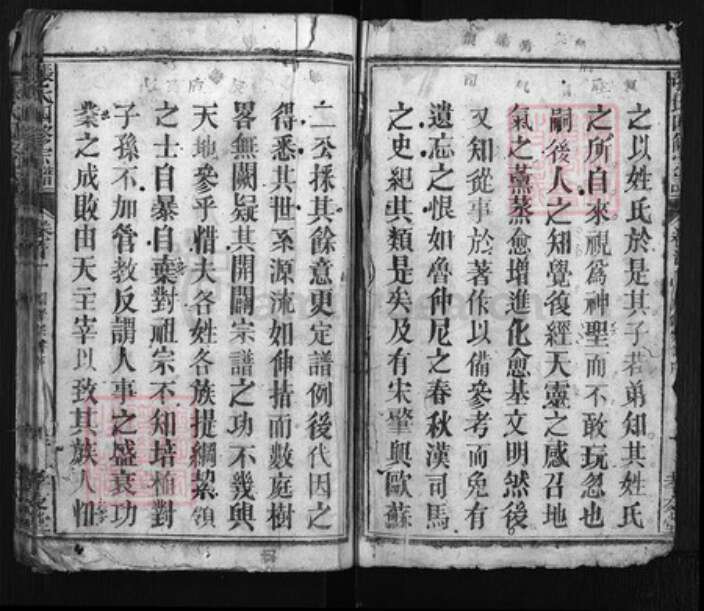 之以姓氏於是其子若弟知其姓氏
之所自來視爲神聖而不敢玩忽也
嗣後人之知覺復經天靈之感召地
氣之薰蒸愈增進化愈基文明然後
又知從事於著作以備參考而免有
遺忘之恨如魯仲尼之春秋漢司馬
之史紀其類是矣及有宋肇興歐蘇
二公採其餘意更定譜例後代因之
得悉其世系源流如伸指而數庭樹
畧無闕疑其開闢宗譜之功不幾與
天地參乎惜夫各姓各族提綱絜領
之士自暴自棄對祖宗不知培植對
子孫不加管教反謂人事之盛衰功
業之成敗由天主宰以致其族人忸
張氏四修宗譜
卷首一